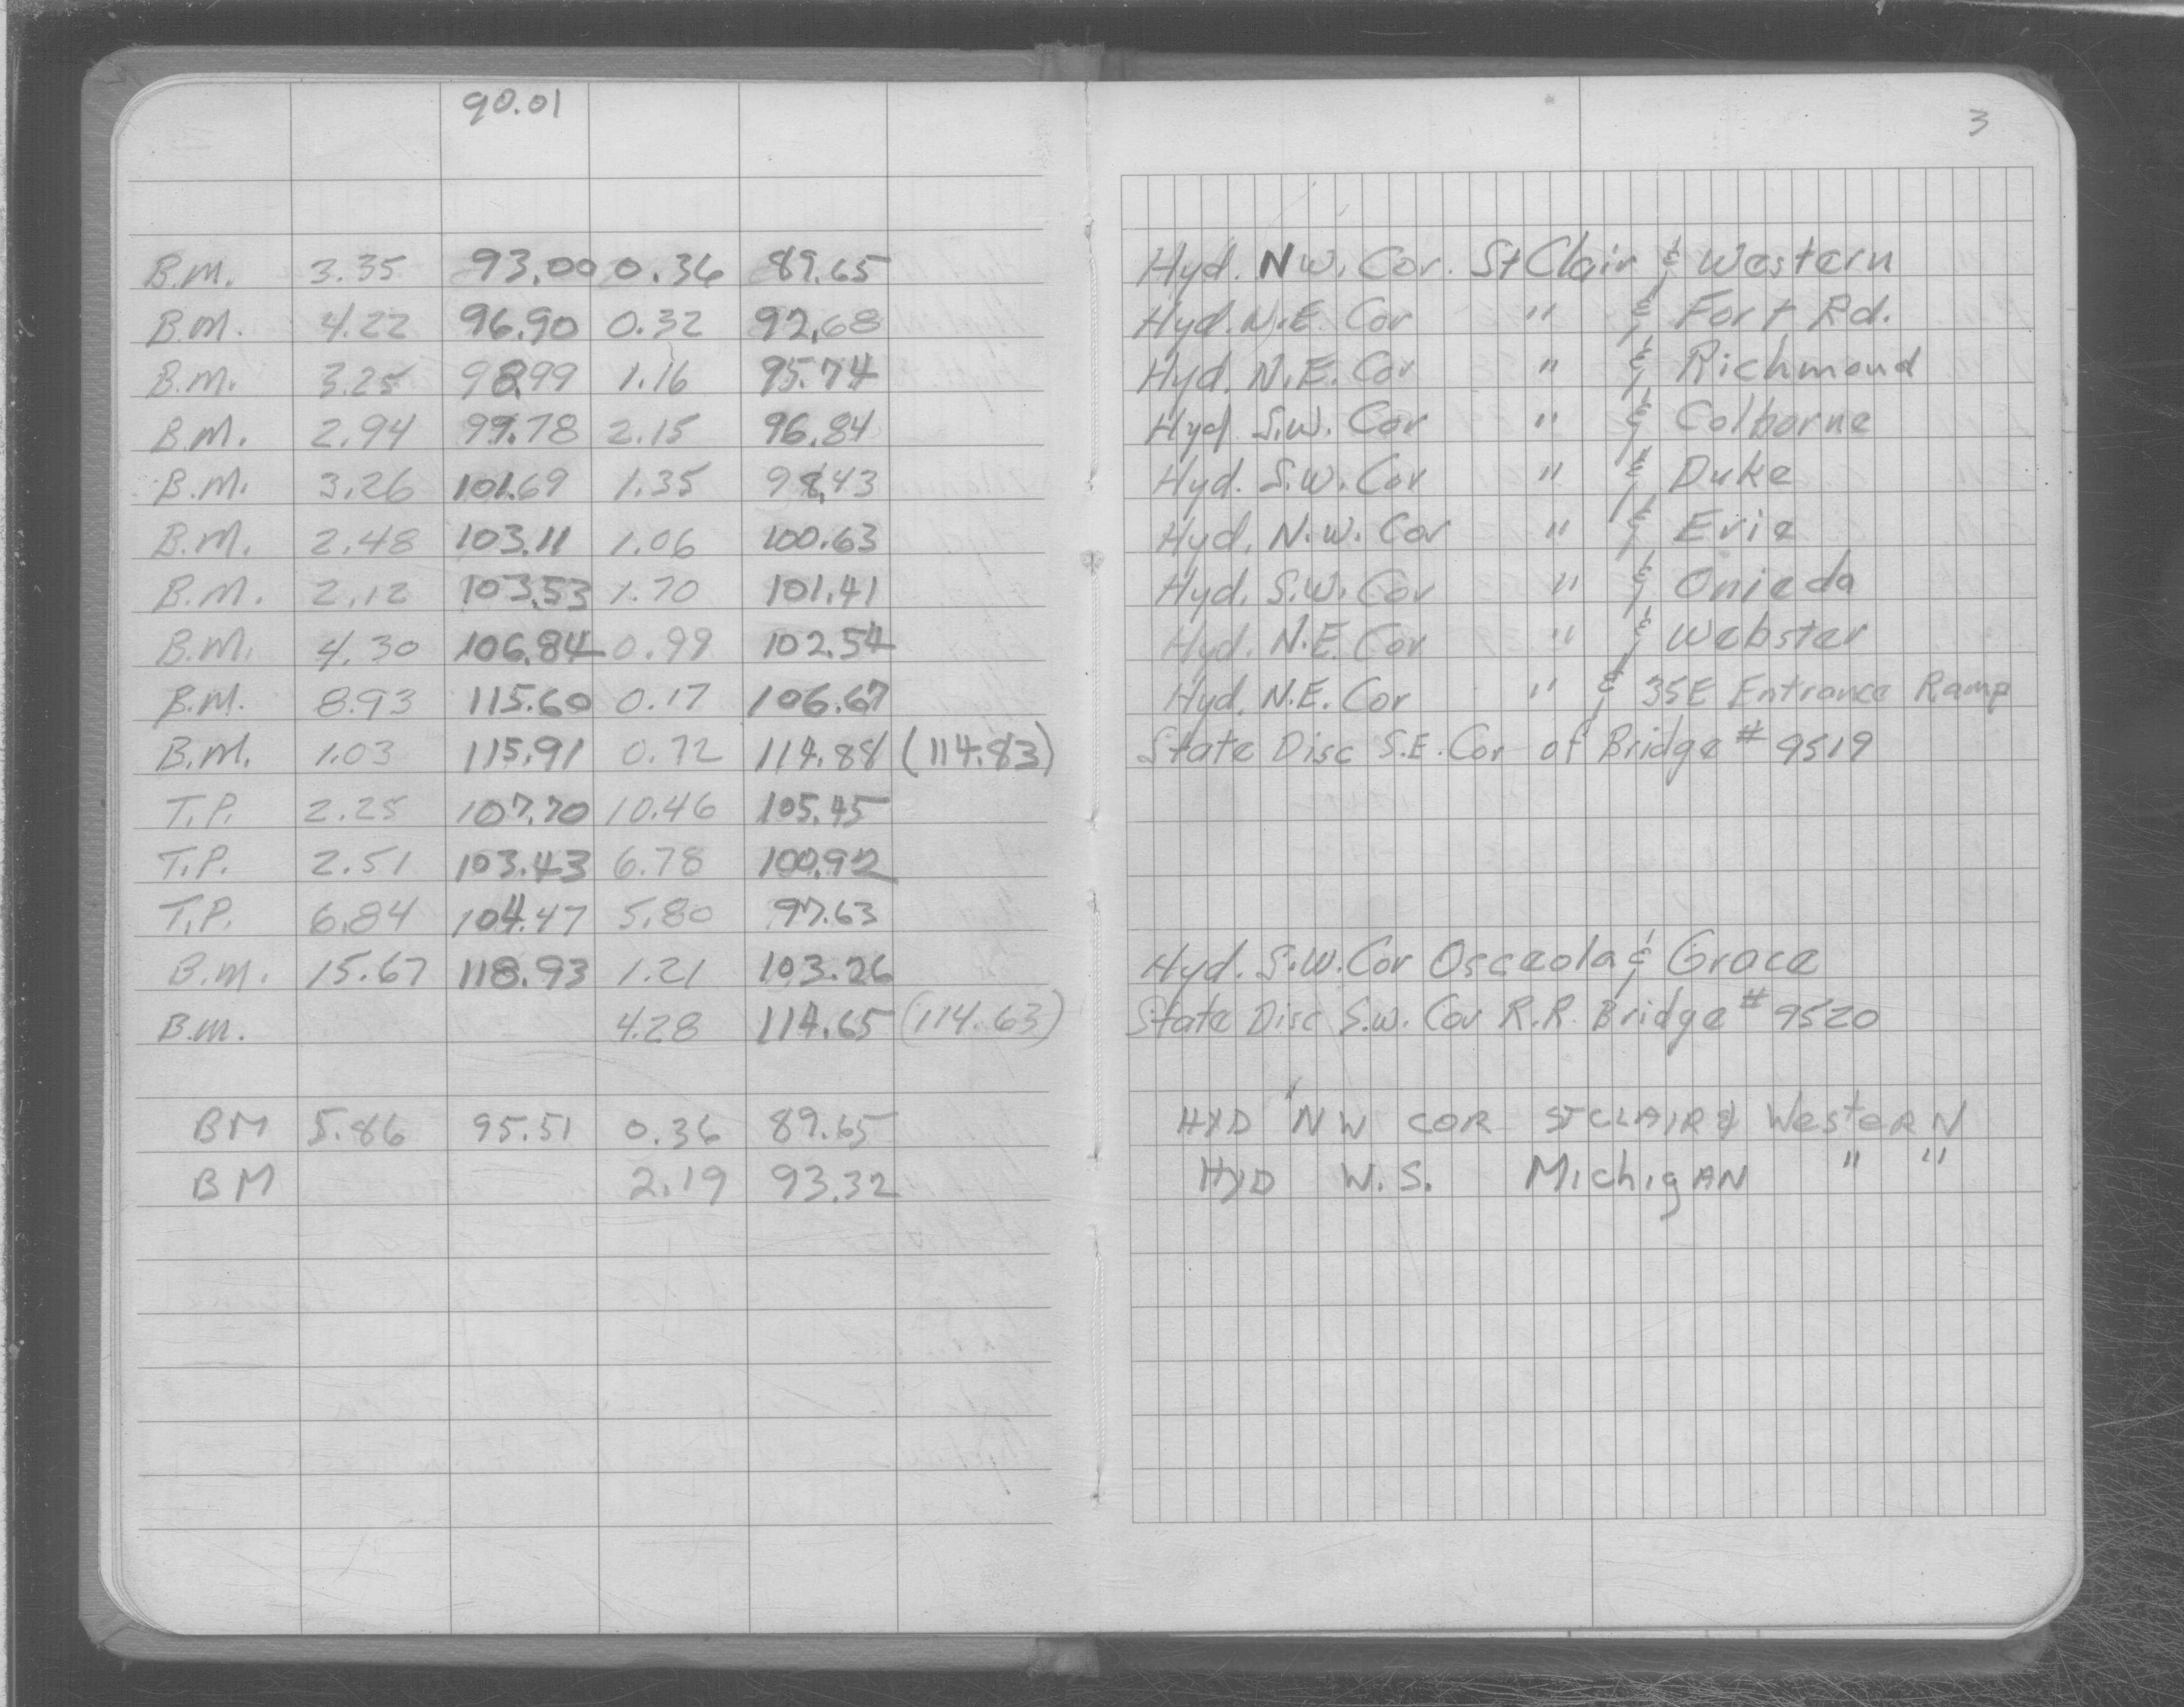 90.01
3
B.M. 3.35 93.00 0.36 89.65 Hyd. N.W. Cor. St Clair & Western
B.M. 4.22 96.90 0.32 92.68 Hyd. N.E. Cor " & Fort Rd.
B.M. 3.25 98.99 1.16 95.74 Hyd. N.E. Cor " & Richmond
B.M. 2.94 99.78 2.15 96.84 Hyd S.W. Cor " & Colborne
B.M. 3.26 101.69 1.35 98.43 Hyd. S.W. Cor " & Duke
B.M. 2.48 103.11 1.06 100.63 Hyd. N.W. Cor " & Erie
B.M. 2.12 103.53 1.70 101.41 Hyd. S.W. Cor " & Onieda
B.M. 4.30 106.84 0.99 102.54 Hyd. N.E. Cor " & Webster
B.M. 8.93 115.60 0.17 106.67 Hyd. N.E. Cor " & 35E Entrance Ramp
B.M. 1.03 115.91 0.72 114.88 (114.83) State Disc S.E. Cor of Bridge # 9519
T.P. 2.25 107.70 10.46 105.45
T.P. 2.51 103.43 6.78 100.92
T.P. 6.84 104.47 5.80 97.63
B.M. 15.67 118.93 1.21 103.26 Hyd. S.W. Cor Osceola & Grace
B.M. 4.28 114.65 (114.63) State Disc S.W. Cor R.R. Bridge # 9520
BM 5.86 95.51 0.36 89.65 HYD NW COR ST CLAIR & WesteRN
BM 2.19 93.32 HYD W.S. MichigAN " "